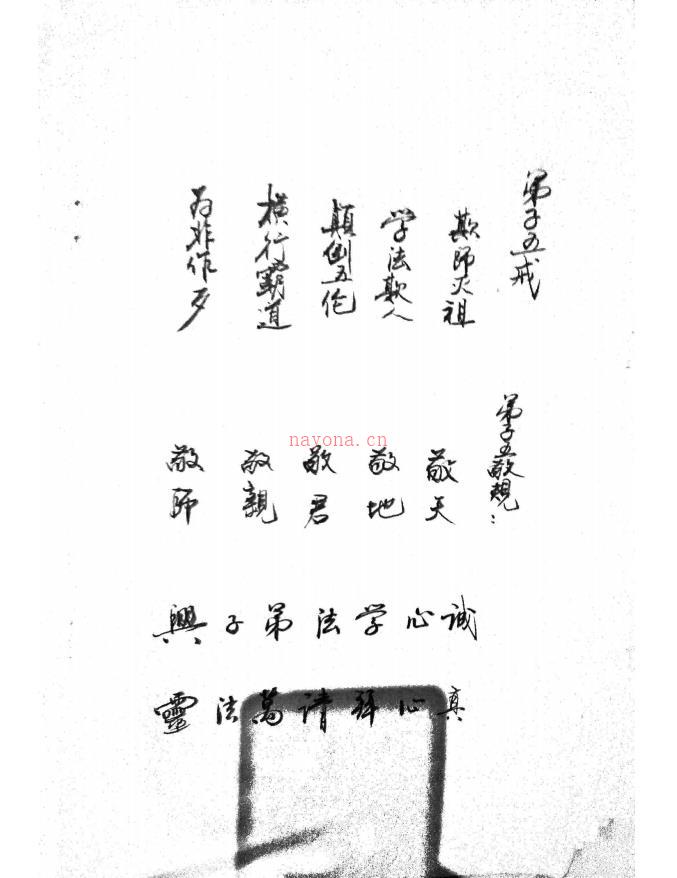 弟子五戒
欺师灭祖
学法欺人
顛倒五伦
橫行霸道
为非作歹
弟子五敬規：
敬天
敬地
敬君
敬親
敬师
诚心学法弟子興
真心拜请萬法靈
nayona.cn